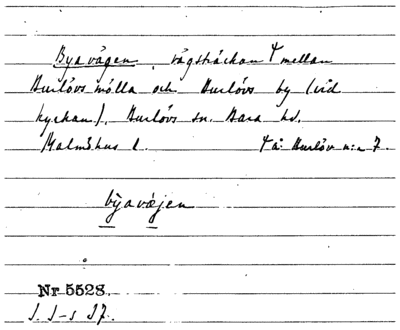 Byavägen, vägsträckan † mellan
Burlövs mölla och Burlövs by (vid
kyrkan). Burlövs sn. Bara hd.
Malmöhus l. † å: Burlöv n:o 7.
býavæjen
Nr 5528.
J. J-s 37.